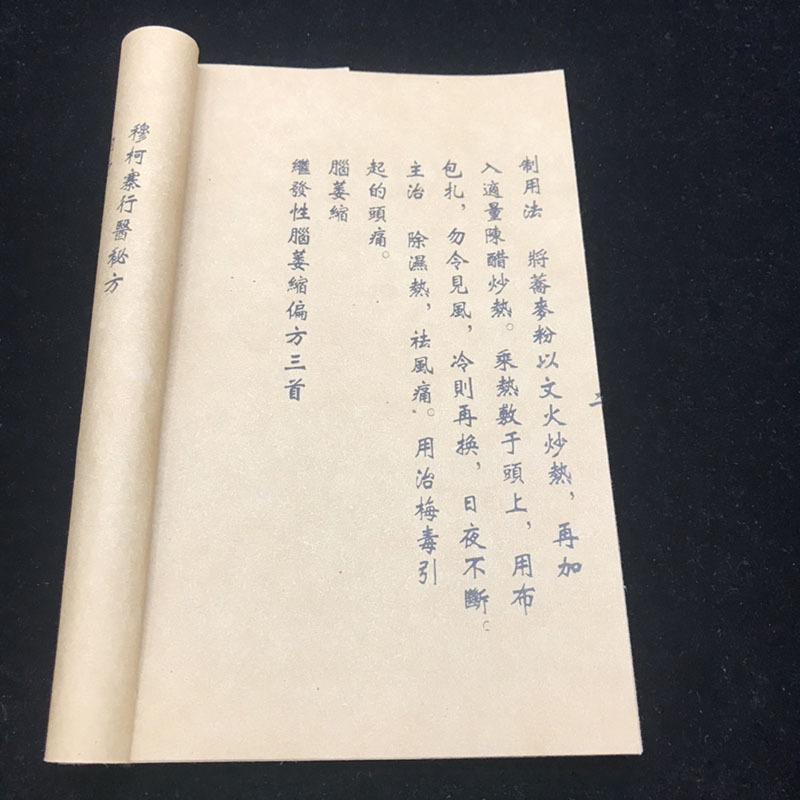 制用法　將蕎麥粉以文火炒熱，再加
入適量陳醋炒熱。乘熱敷于頭上，用布
包扎，勿令見風，冷則再换，日夜不斷。
主治　除濕熱，祛風痛。用治梅毒引
起的頭痛。
腦萎縮
繼發性腦萎縮偏方三首
穆柯寨行醫秘方